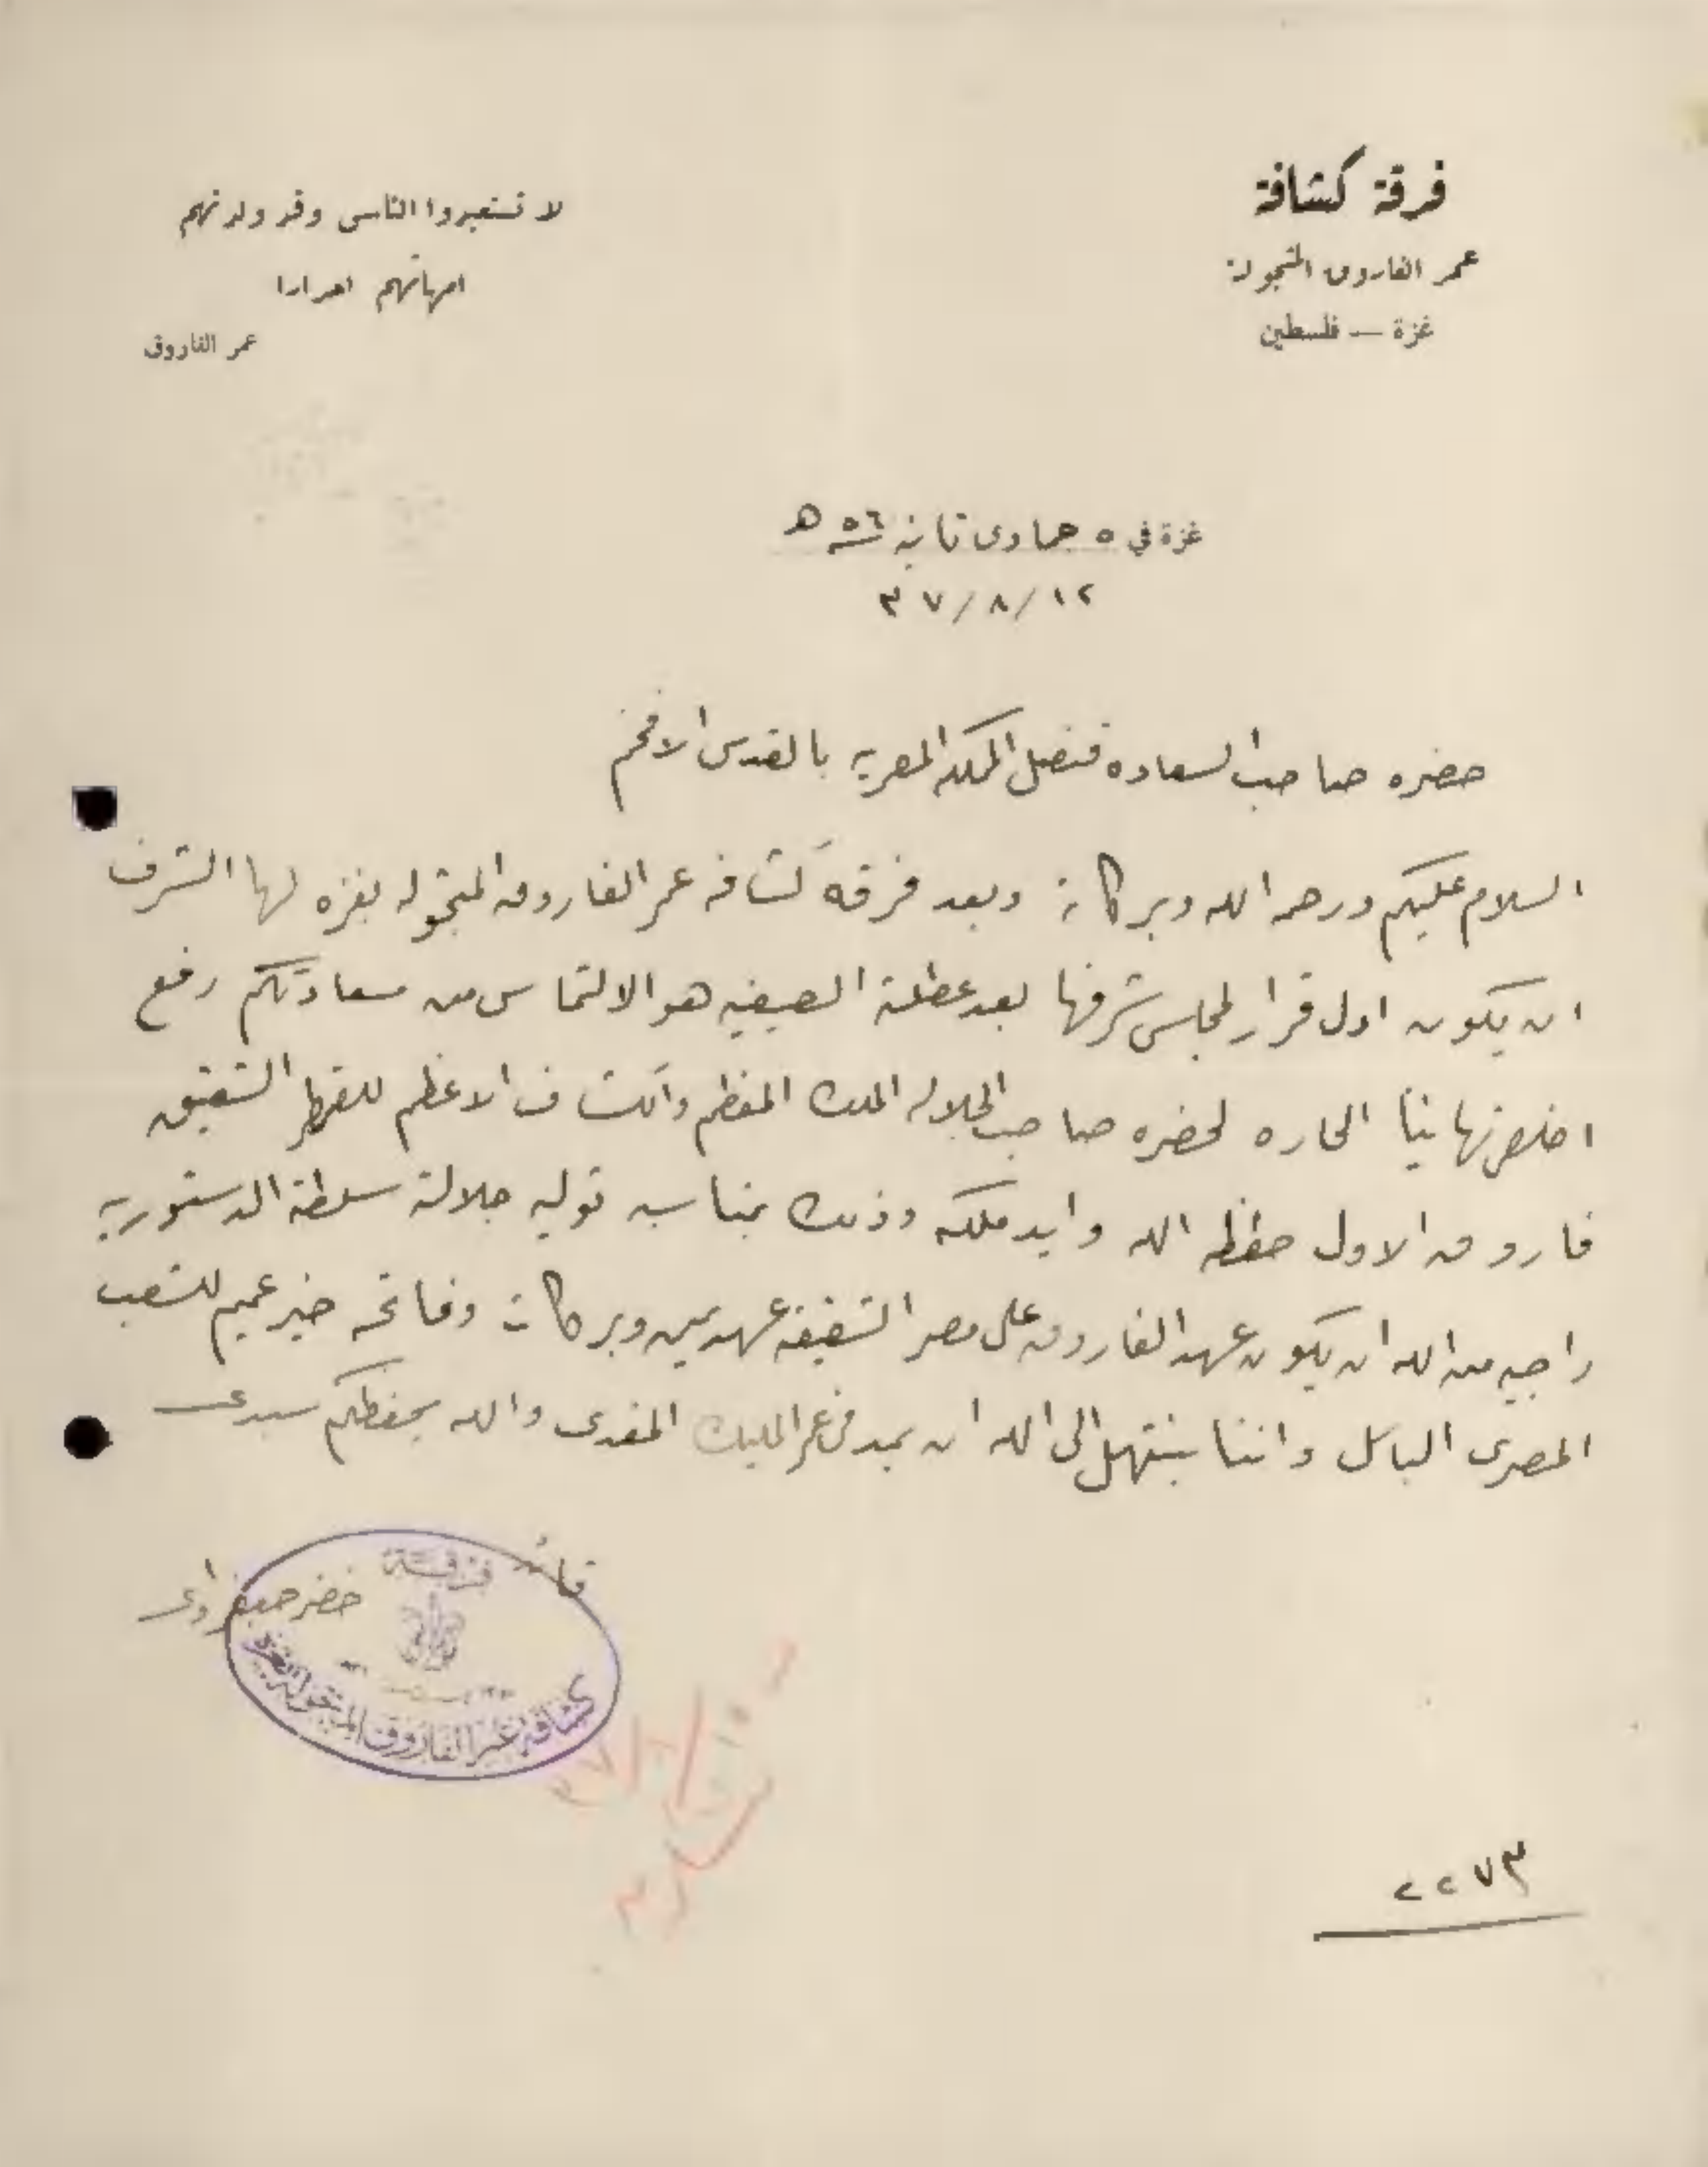 فرقة كشافة
عمر الفاروق المتجولة
غزة — فلسطين
لا تستعبدوا الناس وقد ولدتهم
امهاتهم احرارا
عمر الفاروق
غزة في ٥ جمادى ثانيه ٥٦ هـ
١٢/٨/٣٧
حضره صاحب السعاده قنصل المملكه المصريه بالقدس الافخم
السلام عليكم ورحمة الله وبركاته وبعد فرقة كشافه عمر الفاروق المتجوله بغزه لها الشرف
ان يكون اول قرار لمجلس شرفها بعد عطلته الصيفيه هو الالتماس من سعادتكم رفع
اخلص تهانينا الحاره لحضره صاحب الجلاله الملك المعظم والكشاف الاعظم للقطر الشقيق
فاروق الاول حفظه الله وايد ملكه وذلك بمناسبه توليه جلالته سلطته الدستوريه
راجيه من الله ان يكون عهد الفاروق على مصر الشقيقه عهد يمن وبركات وفاتحه خير عميم للشعب
المصرى الباسل واننا نبتهل الى الله ان يمد فى عمر المليك المفدى والله يحفظكم سيدى
قائد
خضر جعفراوى
فرقة
كشافة عمر الفاروق المتجولة بغزة
٢٢٧٣